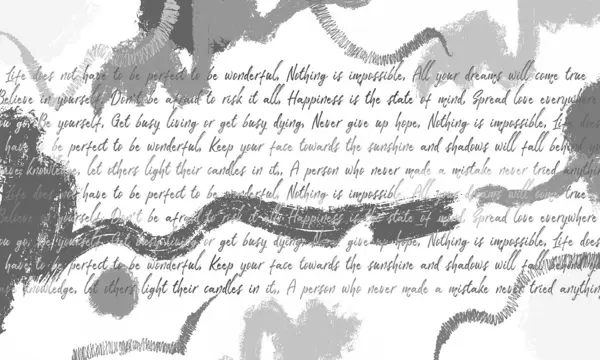 Life does not have to be perfect to be wonderful, Nothing is impossible, All your dreams will come true
Believe in yourself, Don't be afraid to risk it all, Happiness is the state of mind, Spread love everywhere
you go, Be yourself, Get busy living or get busy dying, Never give up hope, Nothing is impossible, Life does
have to be perfect to be wonderful, Keep your face towards the sunshine and shadows will fall behind you
knowledge, let others light their candles in it, A person who never made a mistake never tried anything
Life does have to be perfect to be wonderful, Nothing is impossible, All your dreams will come true
Believe in yourself, Don't be afraid to risk it all, Happiness is the state of mind, Spread love everywhere
you go, Be yourself, Get busy living or get busy dying, Never give up hope, Nothing is impossible, Life does
have to be perfect to be wonderful, Keep your face towards the sunshine and shadows will fall behind
knowledge, let others light their candles in it, A person who never made a mistake never tried anything